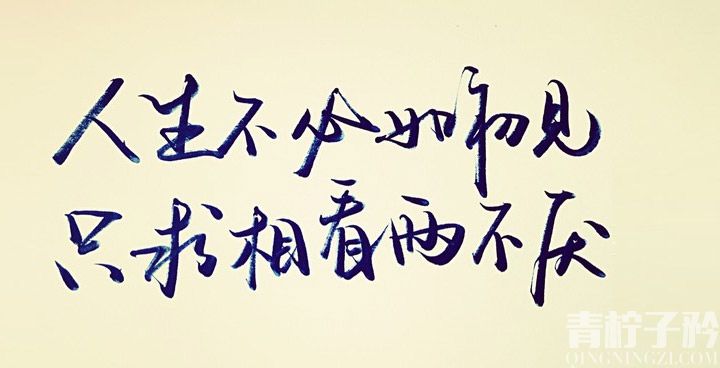 人生不必如初见
只求相看两不厌
青柠子衿
QINGNINGZI.COM